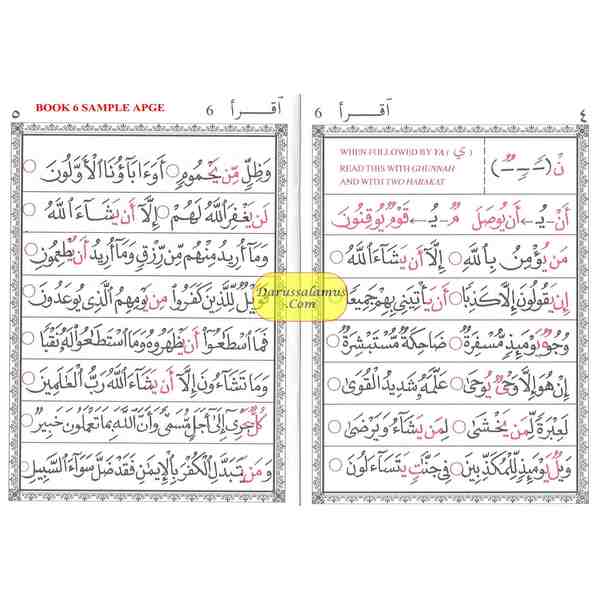 ٤ اقرأ 6
نْ (ـًـ ـٍـ ـٌـ)
WHEN FOLLOWED BY YA ( ي )
READ THIS WITH GHUNNAH
AND WITH TWO HARAKAT
أَنْ - يُـ ← أَن يُوصَلَ مٌ - يُـ ← قَوْمٌ يُوقِنُونَ
مَن يُؤْمِنُ بِاللَّهِ ○ إِلَّا أَن يَشَاءَ اللَّهُ ○
إِن يَقُولُونَ إِلَّا كَذِبًا ○ أَن يَأْتِيَنِي بِهِمْ جَمِيعًا
وُجُوهٌ يَوْمَئِذٍ مُّسْفِرَةٌ ○ ضَاحِكَةٌ مُّسْتَبْشِرَةٌ ○
إِنْ هُوَ إِلَّا وَحْيٌ يُوحَىٰ ○ عَلَّمَهُ شَدِيدُ الْقُوَىٰ ○
لَعِبْرَةً لِّمَن يَخْشَىٰ ○ لِمَن يَشَاءُ وَيَرْضَىٰ ○
وَيْلٌ يَوْمَئِذٍ لِّلْمُكَذِّبِينَ ○ فِي جَنَّاتٍ يَتَسَاءَلُونَ ○
٥ BOOK 6 SAMPLE APGE 6 اقرأ
وَظِلٍّ مِّن يَحْمُومٍ ○ أَوَءَابَآؤُنَا الْأَوَّلُونَ ○
لَن يَغْفِرَ اللَّهُ لَهُمْ ○ إِلَّا أَن يَشَآءَ اللَّهُ ○
وَمَآ أُرِيدُ مِنْهُم مِّن رِّزْقٍ وَمَآ أُرِيدُ أَن يُطْعِمُونِ ○
فَوَيْلٌ لِّلَّذِينَ كَفَرُوا مِن يَوْمِهِمُ الَّذِي يُوعَدُونَ ○
فَمَا اسْطَاعُوٓا أَن يَظْهَرُوهُ وَمَا اسْتَطَاعُوا لَهُ نَقْبًا ○
وَمَا تَشَآءُونَ إِلَّآ أَن يَشَآءَ اللَّهُ رَبُّ الْعَالَمِينَ ○
كُلٌّ يَجْرِي إِلَىٰ أَجَلٍ مُّسَمًّى وَأَنَّ اللَّهَ بِمَا تَعْمَلُونَ خَبِيرٌ ○
وَمَن يَتَبَدَّلِ الْكُفْرَ بِالْإِيمَانِ فَقَدْ ضَلَّ سَوَآءَ السَّبِيلِ ○
Darussalamus
.Com